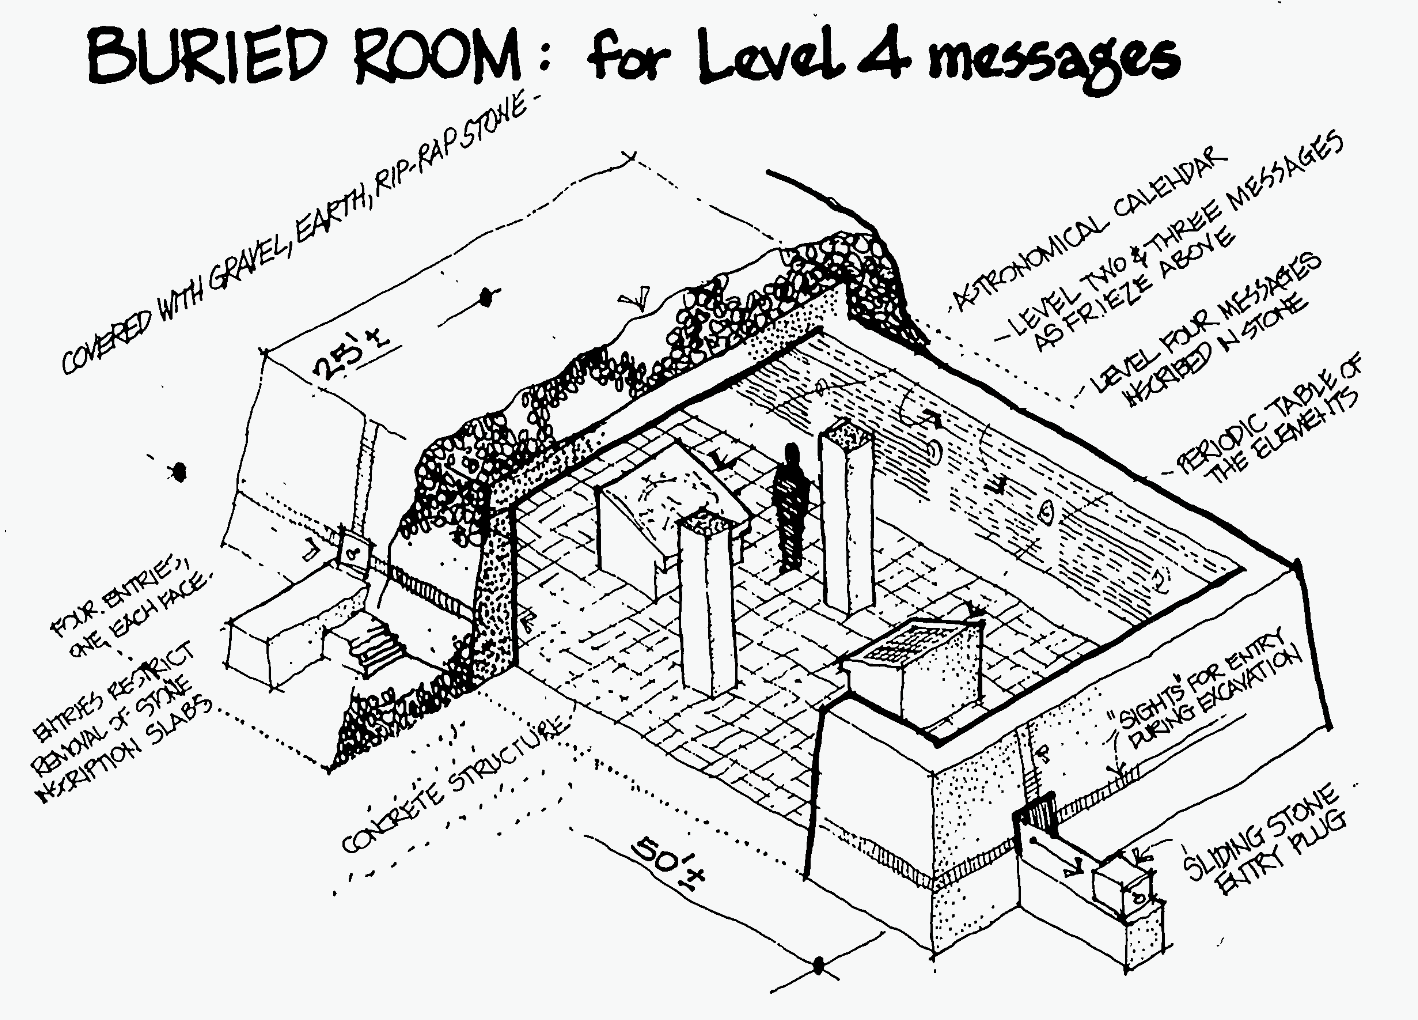 BURIED ROOM: for Level 4 messages
COVERED WITH GRAVEL, EARTH, RIP-RAP STONE -
25'±
- ASTRONOMICAL CALENDAR
- LEVEL TWO & THREE MESSAGES
AS FRIEZE ABOVE
- LEVEL FOUR MESSAGES
INSCRIBED IN STONE
- PERIODIC TABLE OF
THE ELEMENTS
FOUR ENTRIES,
ONE EACH FACE.
ENTRIES RESTRICT
REMOVAL OF STONE
INSCRIPTION SLABS
CONCRETE STRUCTURE
50'±
"SIGHTS" FOR ENTRY
DURING EXCAVATION
SLIDING STONE
ENTRY PLUG